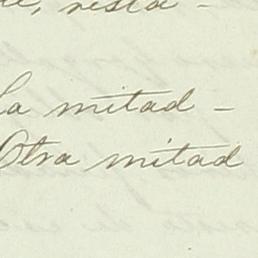 resta -
La mitad -
Otra mitad